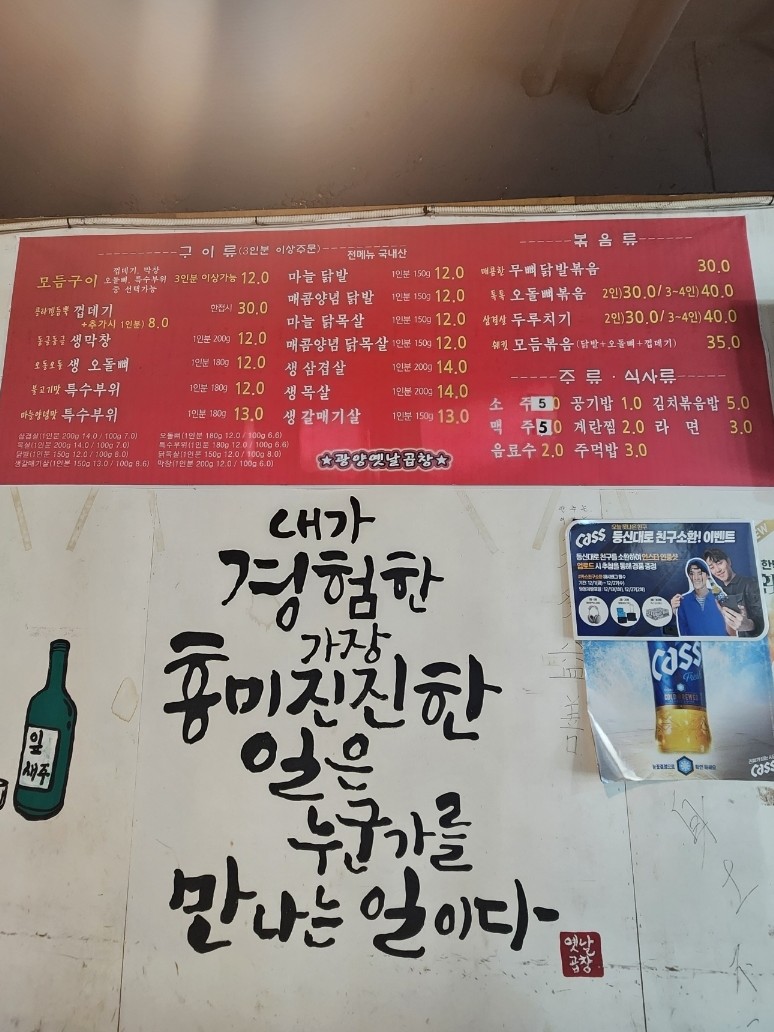 구 이 류(3인분 이상주문)
전메뉴 국내산
모듬구이 껍데기, 막창 오돌뼈, 특수부위 중 선택가능 3인분 이상가능 12.0
껍데기 한접시 30.0
+추가시 1인분) 8.0
생막창 1인분 200g 12.0
오동오동 생 오돌뼈 1인분 180g 12.0
불고기맛 특수부위 1인분 180g 12.0
마늘양념맛 특수부위 1인분 180g 13.0
마늘 닭발 1인분 150g 12.0
매콤양념 닭발 1인분 150g 12.0
마늘 닭목살 1인분 150g 12.0
매콤양념 닭목살 1인분 150g 12.0
생 삼겹살 1인분 200g 14.0
생 목살 1인분 200g 14.0
생 갈매기살 1인분 150g 13.0
삼겹살(1인분 200g 14.0 / 100g 7.0)
목살(1인분 200g 14.0 / 100g 7.0)
닭발(1인분 150g 12.0 / 100g 8.0)
생갈매기살(1인분 150g 13.0 / 100g 8.6)
오돌뼈(1인분 180g 12.0 / 100g 6.6)
특수부위(1인분 180g 12.0 / 100g 6.6)
닭목살(1인분 150g 12.0 / 100g 8.0)
막창(1인분 200g 12.0 / 100g 6.0)
★광양옛날곱창★
볶 음 류
매콤한 무뼈닭발볶음 30.0
톡톡 오돌뼈볶음 2인)30.0/ 3~4인)40.0
삼겹살 두루치기 2인)30.0/ 3~4인)40.0
모듬볶음(닭발+오돌뼈+껍데기) 35.0
주 류 · 식사류
소 주 5.0 공기밥 1.0 김치볶음밥 5.0
맥 주 5.0 계란찜 2.0 라 면 3.0
음료수 2.0 주먹밥 3.0
내가
경험한
가장
흥미진진한
일은
누군가를
만나는 일이다
옛날
곱창
잎
새주
오늘 밤 나의 친구
Cass 동신대로 친구소환! 이벤트
동신대로 친구를 소환하여 인스타 인증샷
업로드 시 추첨을 통해 경품 증정
Cass
Fresh
Cass